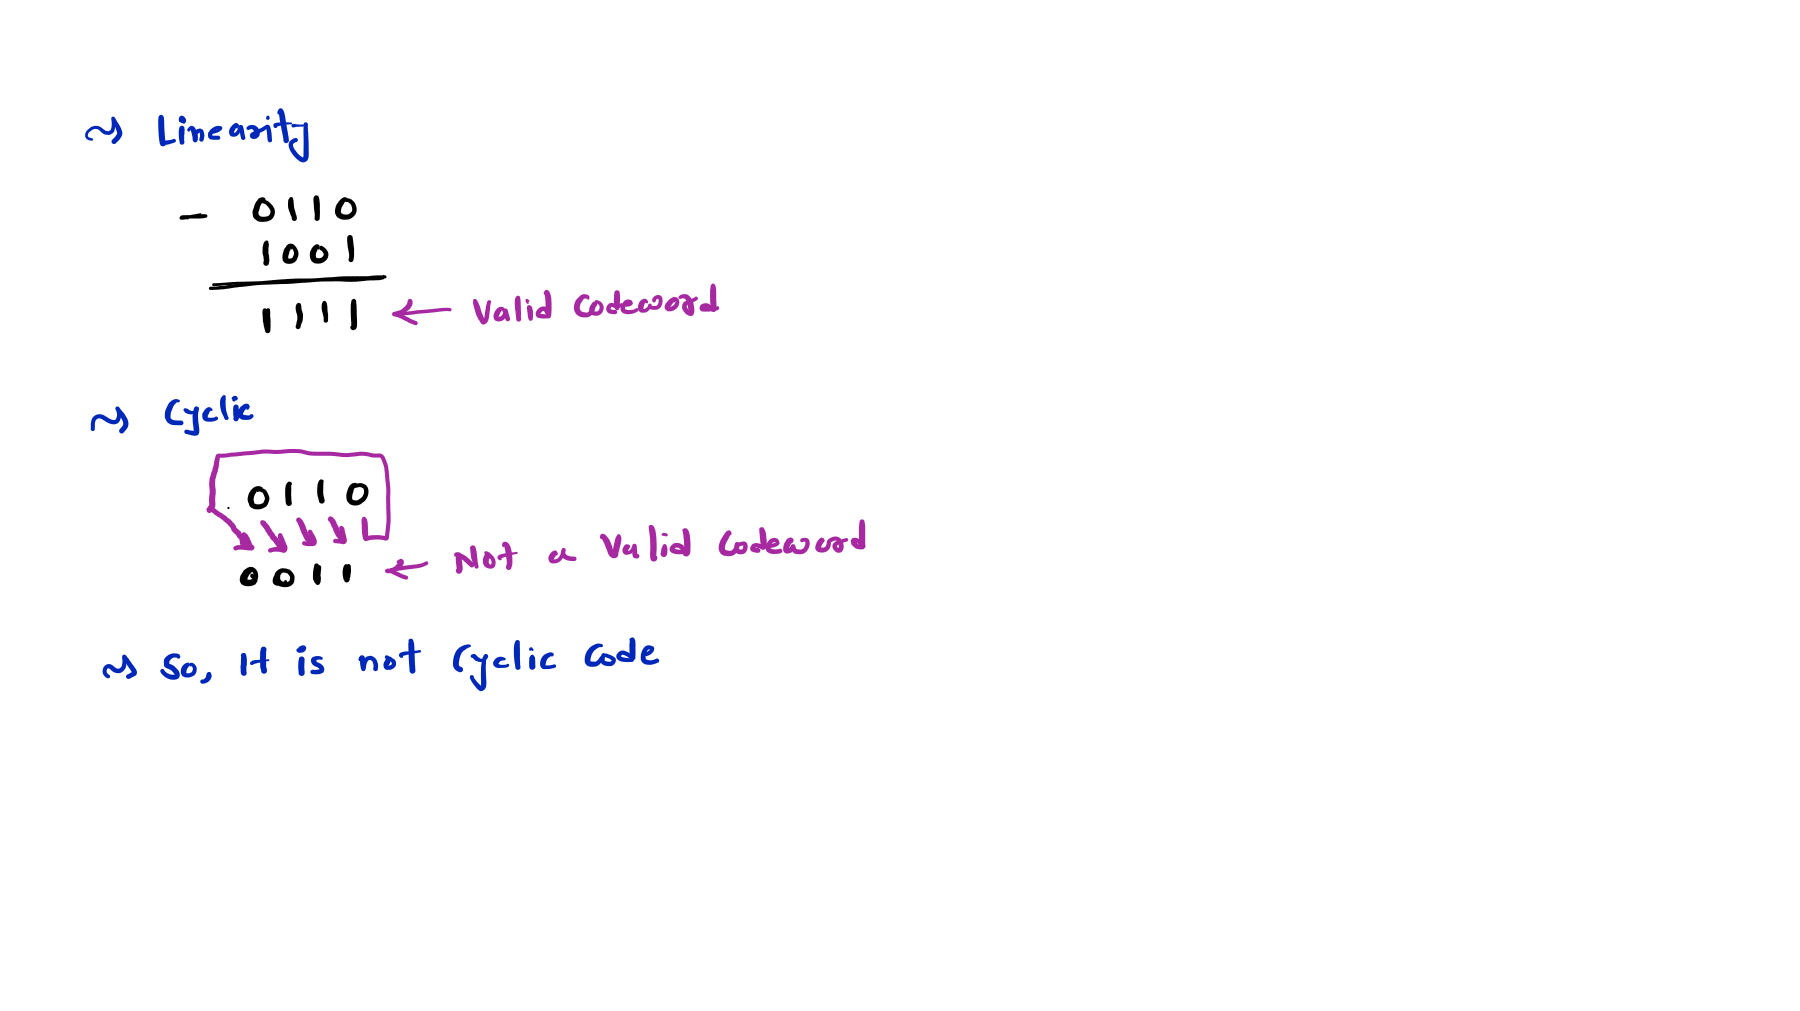 ~> Linearity
- 0110
1001
1111 ← Valid Codeword
~> Cyclic
0110
0011 ← Not a Valid Codeword
~> So, It is not Cyclic Code